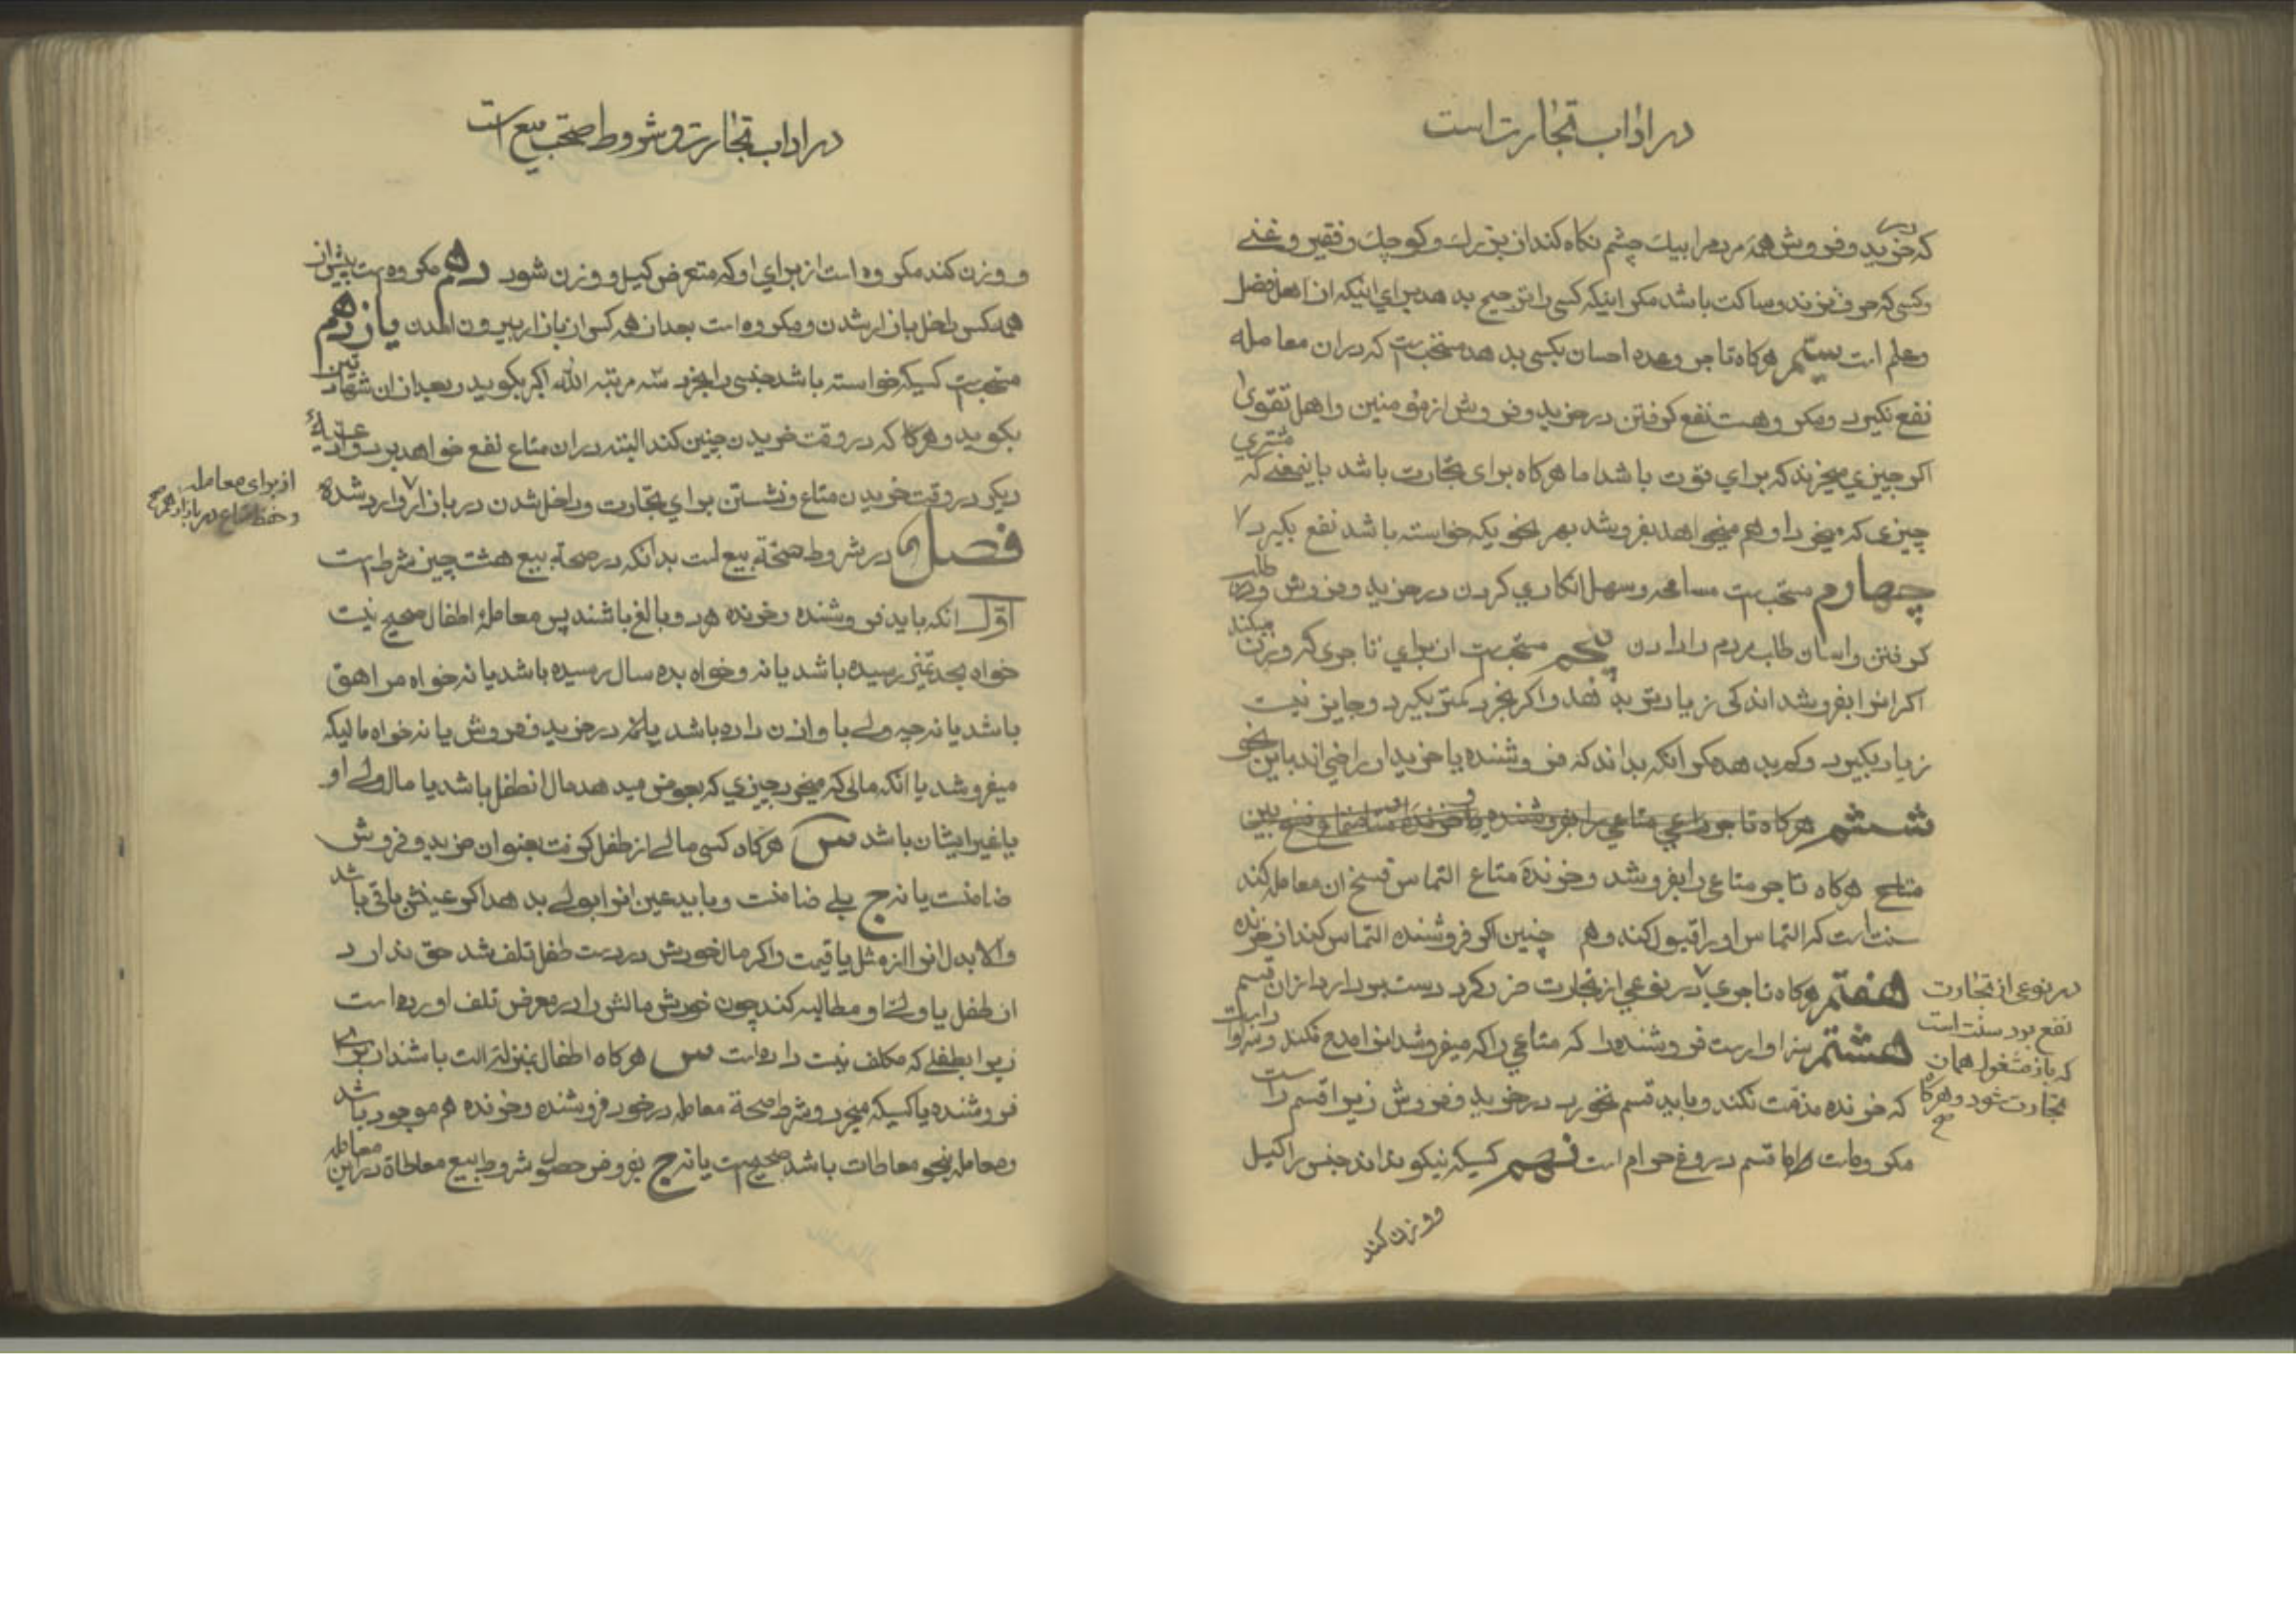 در اداب تجارت است
که در خرید و فروش همهٔ مردم را بیک چشم نکاه کند از بزرك و کوچك و فقیر و غنی
وکسی که حرف زند و ساکت باشد مکر اینکه کسی را ترجیح بدهد برای اینکه از اهل فضل
و علم است سیّم هرکاه تاجر وعده احسان بکسی بدهد مستحب است که در ان معامله
نفع نکیرد و مکروهست نفع کرفتن در خرید و فروش از مؤمنین و اهل تقوی
اکر چیزی میخرند که برای قوت باشد اما هرکاه برای تجارت باشد باینمعنی که مشتری
چیزی که میخرد او هم میخواهد بفروشد بهر نحو یکه خواسته باشد نفع بکیرد
چهارم مستحب است مسامحه و سهل انکاری کردن در خرید و فروش و طلب
کرفتن و اسان طلب مردم را دادن پنجم مستحب است از برای تاجری که وزن میکند
اکر انرا بفروشد اندکی زیادتر بدهد و اکر بخرد کمتر بکیرد و جایز نیست
زیاد بکیرد و کم بدهد مکر انکه بداند که فروشنده یا خریدار راضی اند باین نحو
ششم هرکاه تاجر متاعی را بفروشد
هرکاه تاجر متاعی را بفروشد و خرندهٔ متاع التماس فسخ ان معامله کند
سنت است که التماس او را قبول کند و هم چنین اکر فروشنده التماس کند از خرنده
هفتم هرکاه تاجری در نوعی از تجارت ضرر کرد دست بردارد از ان قسم
در نوعی از تجارت
نفع برد سنت است
که باز مشغول همان
تجارت شود و هرکاه
صح
هشتم سزاوار است فروشنده را که متاعی را که میفروشد انرا مدح نکند و سزاوار است
که خرنده مذمت نکند و باید قسم نخورد در خرید و فروش زیرا قسم راست
مکروه است و اما قسم دروغ حرام است نهم کسیکه نیکو نداند جنس را کیل
و وزن کند
در اداب تجارت و شروط صحّت بیع است
و وزن کند مکروه است از برای او که متعرض کیل و وزن شود دهم مکروه است پیش از
همه کس داخل بازار شدن و مکروه است بعد از همه کس از بازار بیرون امدن یازدهم
مستحب است کسیکه خواسته باشد جنسی را بخرد سه مرتبه الله اکبر بکوید و بعد از ان شهادتین
بکوید و هرکاه که در وقت خریدن چنین کند البته در ان متاع نفع خواهد برد و ادعیهٔ
دیکر در وقت خریدن متاع و نشستن برای تجارت و داخل شدن در بازار وارد شده
از برای معامله
و حفظ متاع در بازار هم صح
فصل در شروط صحّة بیع است بدانکه در صحة بیع هشت چیز شرط است
اوّل انکه باید فروشنده و خرنده هر دو بالغ باشند پس معاملهٔ اطفال صحیح نیست
خواه بحد تمیز رسیده باشد یا نه و خواه بده سال رسیده باشد یا نه خواه مراهق
باشد یا نه چه ولی باو اذن داده باشد یا نه در خرید و فروش یا نه خواه مالیکه
میفروشد یا انکه مالی که میخرد چیزی که بعوض میدهد مال انطفل باشد یا مال ولی او
یا غیر ایشان باشد س هرکاه کسی مالی از طفل کرفت بعنوان خرید و فروش
ضامنست یا نه ج بلی ضامنست و باید عین انرا بولی بدهد اکر عینش باقی باشد
و الا بدل انرا از مثل یا قیمت و اکر مال خودش در دست طفل تلف شد حق ندارد
از طفل یا ولی او مطالبه کند چون خودش مالش را در معرض تلف اورده است
زیرا بطفلی که مکلف نیست داده است س هرکاه اطفال بمنزله الت باشند از برای
فروشنده یا کسیکه میخرد و شرط صحة معامله در خود فروشنده و خرنده هم موجود باشد
و معامله بنحو معاطات باشد صحیح است یا نه ج بر فرض حصول شروط بیع معاطاة در این معامله